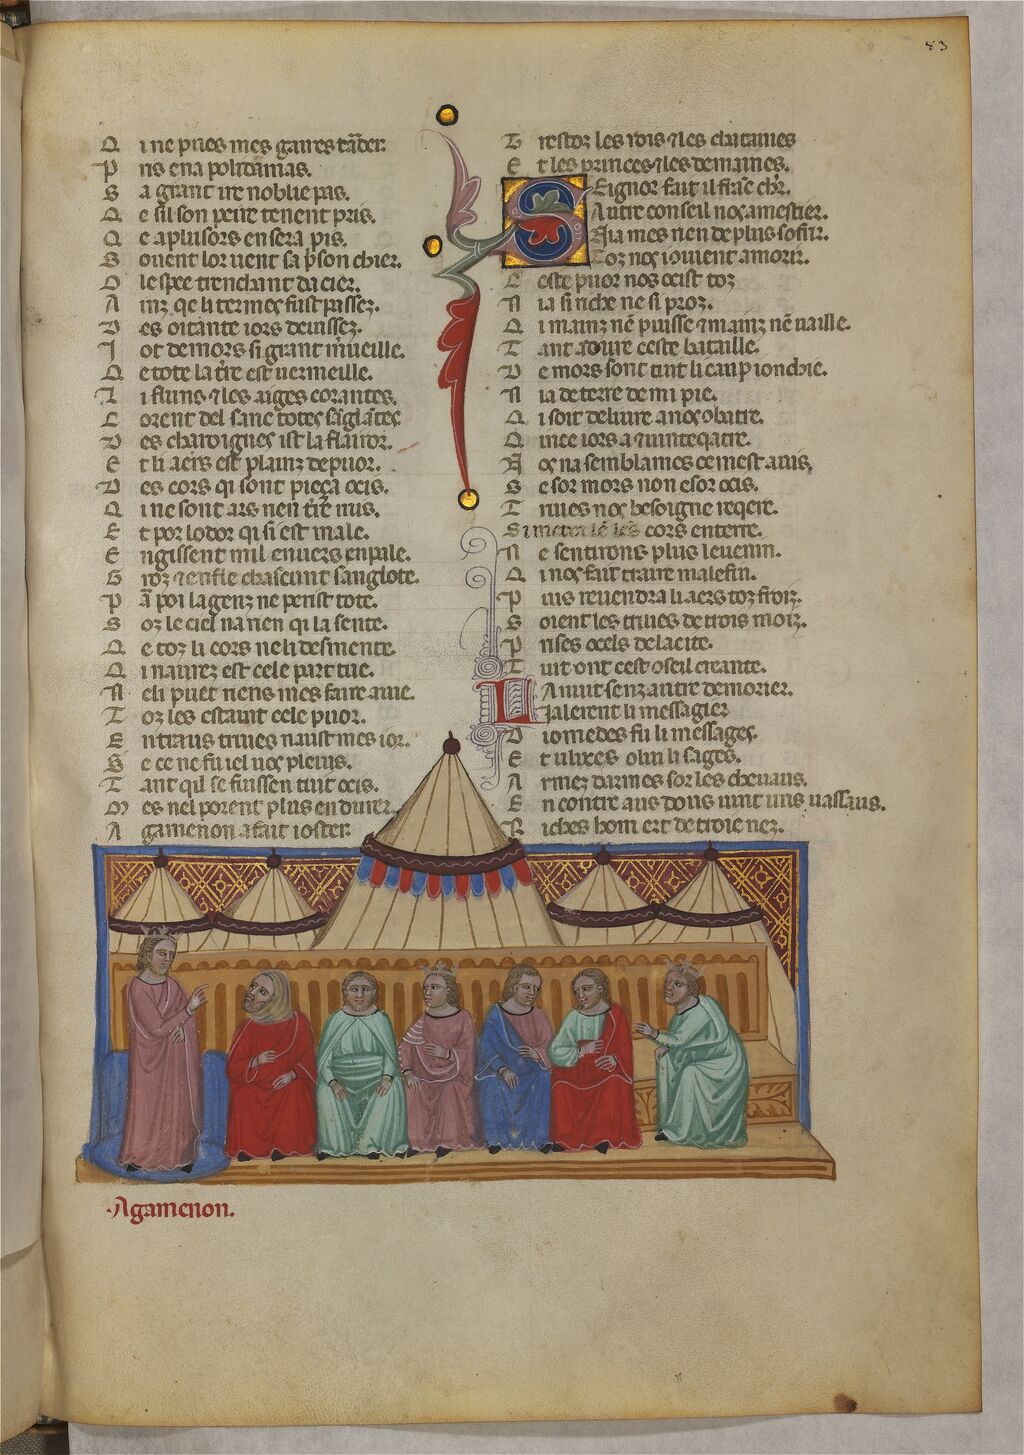 83
Q i ne pues mes gaires tarder
P ris en a polidamas.
S a grant ire noblie pas.
Q e sil son peut tenent pris.
Q e aplusors en sera pis.
S ovent lor vent sa pson chier.
D lespee trenchant dacier.
A inz qe li termes fust passez.
D es oitante iors devissez.
I ot de mors si grant mveille.
Q e tote la tre est vermeille.
L i fluns 7 les aiges corantes.
C orent del sanc totes sanglantes
D es charoignes ist la flairor.
E t li aers est plainz de puor.
D es cors qi sont pieça ocis.
Q i ne sont ars nen tre mis.
E t por lodor qi si est male.
E ngissent mil envers en pale.
G roz 7 enfle chascuns sanglote.
P a poi la genz ne perist tote.
S oz le ciel na rien qi la sente.
Q e toz li cors ne li desmente.
Q i navrez est cele part tue.
N eli puet riens mes faire aiue.
T oz les estaint cele puor.
E ntraus trives naust mes ior.
S e ce ne fu iel nos plevis.
T ant qil se fuissen tuit ocis.
M es nel porent plus endurer.
A gamenon a fait ioster
T restoz les rois 7 les chataines
E t les princes 7 les demaines.
S Eignor fait il franc chr.
Autre conseil nos a mestier.
Aia mes rien de plus sofrir.
Toz nos iovient a morir.
C este puor nos ocist toz
N ia si riche ne si proz.
Q i mainz nen puisse 7 mainz nen vaille.
T ant a dure ceste bataille.
D e mors sont tuit li camp ionchie.
N ia de terre demi pie.
Q i soit delivre a nos obatre.
Q ince iors a 7 vint e qatre.
N os na semblames ce mest avis,
S e sor mors non e sor ocis.
T rives nos besoigne reqere.
S i metra len les cors en terre.
N e sentirons plus le venin.
Q i nos fait traire male fin.
P uis revendra li aers toz froiz.
S oient les trives de trois moiz.
P rises o cels de la cite.
T uit ont cest oseil creante.
L A nuit senz autre demorier.
I alerent li messagier
D iomedes fu li messages.
E t ulixes o lui li sages.
A rmez darmes sor les chevaus.
E n contre aus dous vint uns vassaus.
R iches hom ert de troie nez.
·Agamenon.